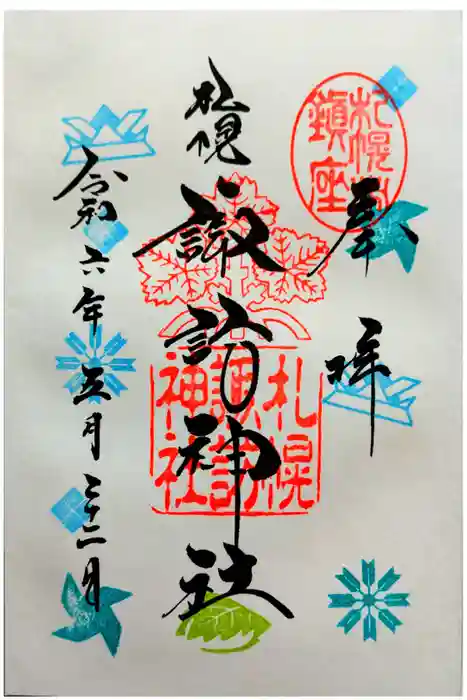 奉拝
札幌
諏訪神社
令和六年五月二十二日
札幌
鎮座
札幌
諏訪
神社